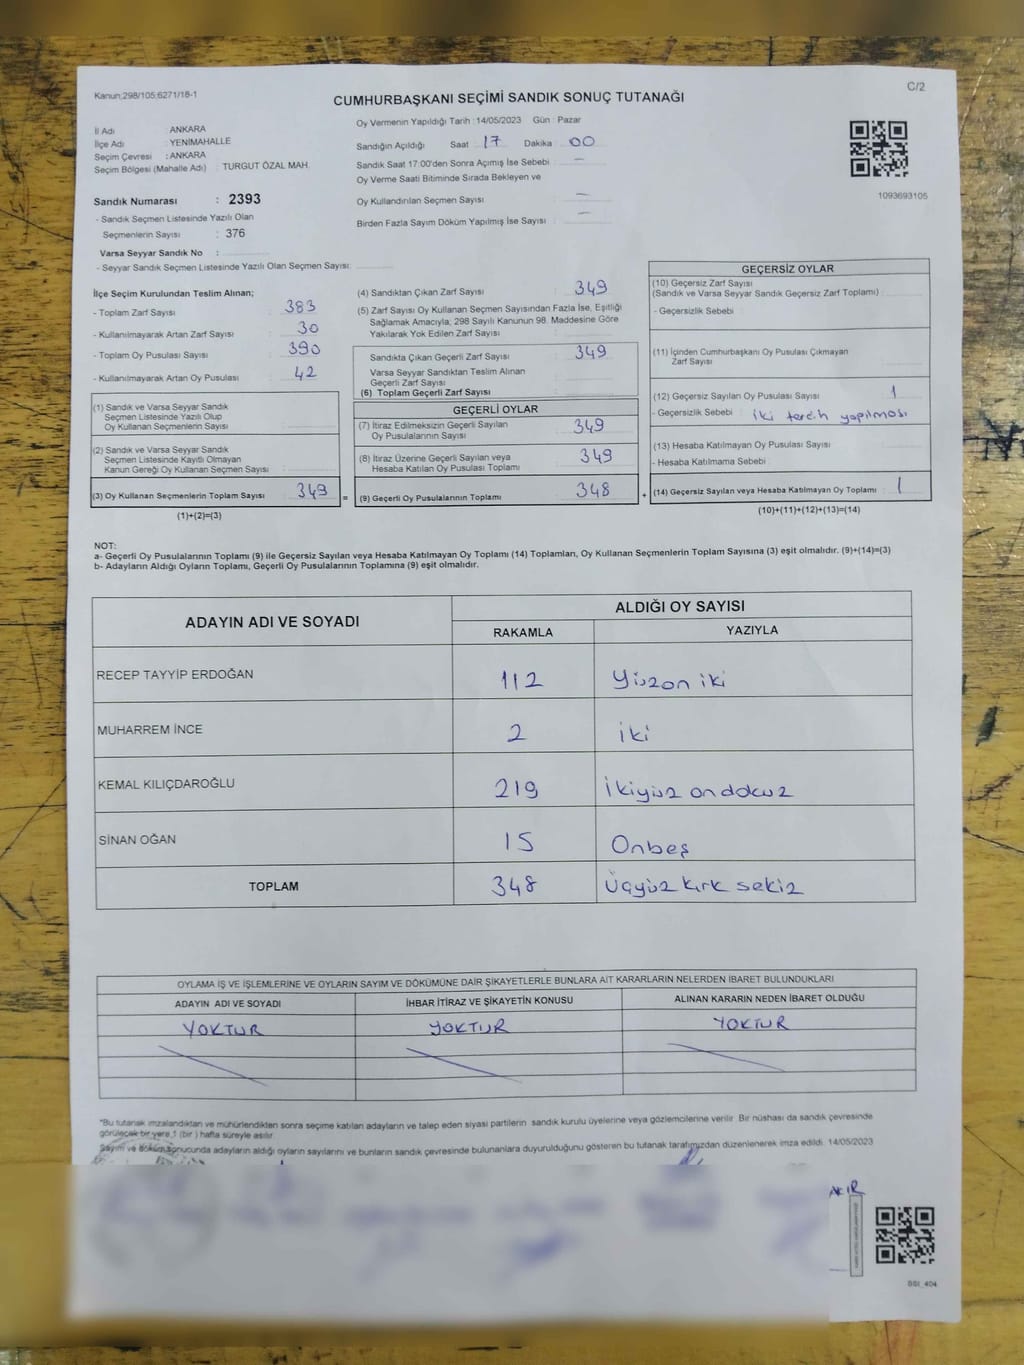 Kanun;298/105;6271/18-1
C/2
CUMHURBAŞKANI SEÇİMİ SANDIK SONUÇ TUTANAĞI
İl Adı : ANKARA
İlçe Adı : YENİMAHALLE
Seçim Çevresi : ANKARA
Seçim Bölgesi (Mahalle Adı) : TURGUT ÖZAL MAH.
Sandık Numarası : 2393
- Sandık Seçmen Listesinde Yazılı Olan
Seçmenlerin Sayısı : 376
Varsa Seyyar Sandık No :
- Seyyar Sandık Seçmen Listesinde Yazılı Olan Seçmen Sayısı:
Oy Vermenin Yapıldığı Tarih : 14/05/2023 Gün : Pazar
Sandığın Açıldığı Saat 17 Dakika 00
Sandık Saat 17:00'den Sonra Açılmış İse Sebebi : —
Oy Verme Saati Bitiminde Sırada Bekleyen ve
Oy Kullandırılan Seçmen Sayısı : —
Birden Fazla Sayım Döküm Yapılmış İse Sayısı : —
1093693105
İlçe Seçim Kurulundan Teslim Alınan;
- Toplam Zarf Sayısı : 383
- Kullanılmayarak Artan Zarf Sayısı : 30
- Toplam Oy Pusulası Sayısı : 390
- Kullanılmayarak Artan Oy Pusulası : 42
(1) Sandık ve Varsa Seyyar Sandık
Seçmen Listesinde Yazılı Olup
Oy Kullanan Seçmenlerin Sayısı :
(2) Sandık ve Varsa Seyyar Sandık
Seçmen Listesinde Kayıtlı Olmayan
Kanun Gereği Oy Kullanan Seçmen Sayısı :
(3) Oy Kullanan Seçmenlerin Toplam Sayısı : 349 =
(1)+(2)=(3)
(4) Sandıktan Çıkan Zarf Sayısı : 349
(5) Zarf Sayısı Oy Kullanan Seçmen Sayısından Fazla İse, Eşitliği
Sağlamak Amacıyla; 298 Sayılı Kanunun 98. Maddesine Göre
Yakılarak Yok Edilen Zarf Sayısı :
Sandıkta Çıkan Geçerli Zarf Sayısı : 349
Varsa Seyyar Sandıktan Teslim Alınan
Geçerli Zarf Sayısı :
(6) Toplam Geçerli Zarf Sayısı :
GEÇERLİ OYLAR
(7) İtiraz Edilmeksizin Geçerli Sayılan
Oy Pusulalarının Sayısı : 349
(8) İtiraz Üzerine Geçerli Sayılan veya
Hesaba Katılan Oy Pusulası Toplamı : 349
(9) Geçerli Oy Pusulalarının Toplamı : 348 +
GEÇERSİZ OYLAR
(10) Geçersiz Zarf Sayısı
(Sandık ve Varsa Seyyar Sandık Geçersiz Zarf Toplamı) :
- Geçersizlik Sebebi :
(11) İçinden Cumhurbaşkanı Oy Pusulası Çıkmayan
Zarf Sayısı :
(12) Geçersiz Sayılan Oy Pusulası Sayısı : 1
- Geçersizlik Sebebi : iki tercih yapılması
(13) Hesaba Katılmayan Oy Pusulası Sayısı :
- Hesaba Katılmama Sebebi :
(14) Geçersiz Sayılan veya Hesaba Katılmayan Oy Toplamı : 1
(10)+(11)+(12)+(13)=(14)
NOT:
a- Geçerli Oy Pusulalarının Toplamı (9) ile Geçersiz Sayılan veya Hesaba Katılmayan Oy Toplamı (14) Toplamları, Oy Kullanan Seçmenlerin Toplam Sayısına (3) eşit olmalıdır. (9)+(14)=(3)
b- Adayların Aldığı Oyların Toplamı, Geçerli Oy Pusulalarının Toplamına (9) eşit olmalıdır.
ADAYIN ADI VE SOYADI ALDIĞI OY SAYISI
RAKAMLA YAZIYLA
RECEP TAYYİP ERDOĞAN 112 Yüzon iki
MUHARREM İNCE 2 iki
KEMAL KILIÇDAROĞLU 219 İkiyüz ondokuz
SİNAN OĞAN 15 Onbeş
TOPLAM 348 Üçyüz kırk sekiz
OYLAMA İŞ VE İŞLEMLERİNE VE OYLARIN SAYIM VE DÖKÜMÜNE DAİR ŞİKAYETLERLE BUNLARA AİT KARARLARIN NELERDEN İBARET BULUNDUKLARI
ADAYIN ADI VE SOYADI İHBAR İTİRAZ VE ŞİKAYETİN KONUSU ALINAN KARARIN NEDEN İBARET OLDUĞU
YOKTUR YOKTUR YOKTUR
*Bu tutanak imzalandıktan ve mühürlendikten sonra seçime katılan adayların ve talep eden siyasi partilerin sandık kurulu üyelerine veya gözlemcilerine verilir. Bir nüshası da sandık çevresinde
görülecek bir yere 1 (bir ) hafta süreyle asılır.
Sayım ve döküm sonucunda adayların aldığı oyların sayılarını ve bunların sandık çevresinde bulunanlara duyurulduğunu gösteren bu tutanak tarafımızdan düzenlenerek imza edildi. 14/05/2023